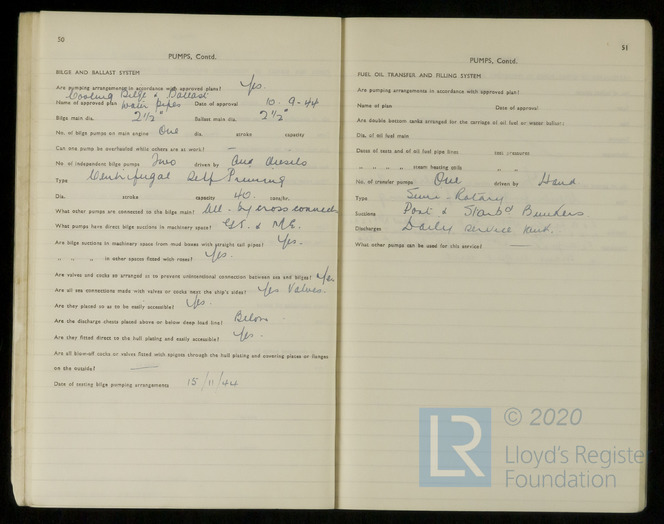 50
PUMPS, Contd.
BILGE AND BALLAST SYSTEM
Are pumping arrangements in accordance with approved plans? Yes.
Cooling Bilge & Ballast
Name of approved plan water pipes Date of approval 10. 9-44
Bilge main dia. 2½" Ballast main dia. 2½"
No. of bilge pumps on main engine One dia. stroke capacity
Can one pump be overhauled while others are at work? —
No. of independent bilge pumps Two driven by Aux diesels
Type Centrifugal Self Priming
Dia. stroke capacity 40. tons/hr.
What other pumps are connected to the bilge main? All - by cross connecti
What pumps have direct bilge suctions in machinery space? & M.E.
Are bilge suctions in machinery space from mud boxes with straight tail pipes? Yes.
„ „ „ in other spaces fitted with roses? Yes.
Are valves and cocks so arranged as to prevent unintentional connection between sea and bilges? Yes
Are all sea connections made with valves or cocks next the ship's sides? Yes Valves.
Are they placed so as to be easily accessible? Yes.
Are the discharge chests placed above or below deep load line? Below.
Are they fitted direct to the hull plating and easily accessible? Yes.
Are all blow-off cocks or valves fitted with spigots through the hull plating and covering plates or flanges
on the outside? —
Date of testing bilge pumping arrangements 15/11/44
51
PUMPS, Contd.
FUEL OIL TRANSFER AND FILLING SYSTEM
Are pumping arrangements in accordance with approved plan?
Name of plan Date of approval
Are double bottom tanks arranged for the carriage of oil fuel or water ballast?
Dia. of oil fuel main
Dates of tests and of oil fuel pipe lines test pressures
„ „ „ „ steam heating coils „ „
No. of transfer pumps One driven by Hand
Type Semi-Rotary
Suctions Port & Starbd Bunkers
Discharges Daily service tank.
What other pumps can be used for this service? —
LR
© 2020
Lloyd's Register
Foundation